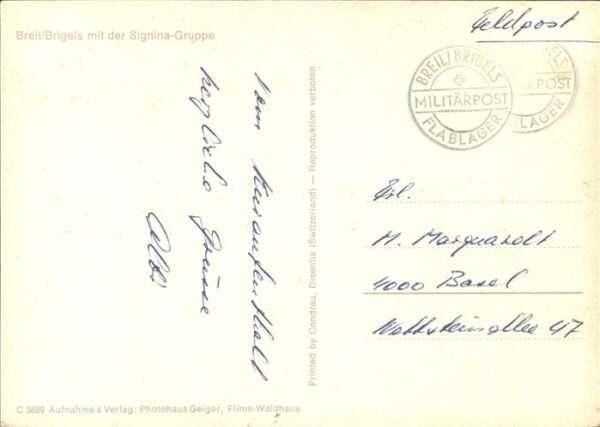 Breil/Brigels mit der Signina-Gruppe
Feldpost
BREIL/BRIGELS
MILITÄRPOST
FLABLAGER
ELS
RPOST
LAGER
Vom Kuraufenthalt
herzliche Grüsse
Albi
Frl.
M. Marquardt
4000 Basel
Wettsteinallee 47
Printed by Condrau, Disentis (Switzerland) — Reproduktion verboten
C 3689 Aufnahme & Verlag: Photohaus Geiger, Flims-Waldhaus